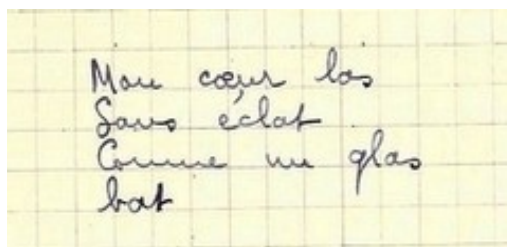 Mon cœur las
Sans éclat
Comme un glas
bat